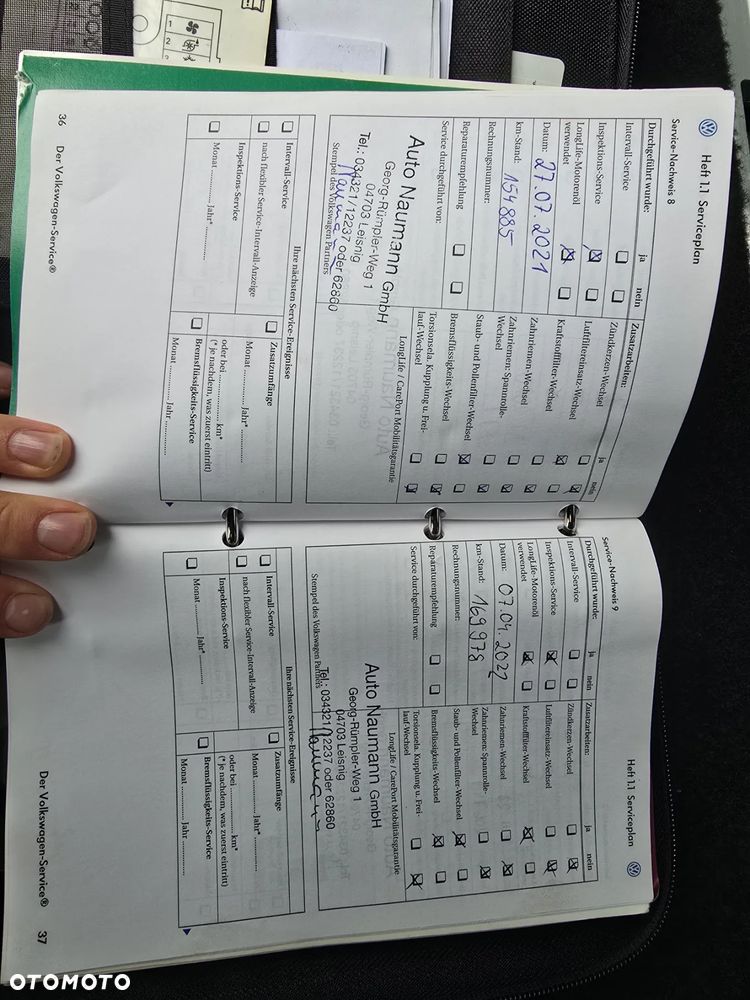 1
2
2
3
Heft 1.1 Serviceplan
Service-Nachweis 8
Durchgeführt wurde: ja nein
Intervall-Service
Inspektions-Service
LongLife-Motorenöl
verwendet
Datum: 27.07.2021
km-Stand: 154885
Rechnungsnummer:
Reparaturempfehlung
Service durchgeführt von:
Zusatzarbeiten: ja nein
Zündkerzen-Wechsel
Luftfiltereinsatz-Wechsel
Kraftstofffilter-Wechsel
Zahnriemen-Wechsel
Zahnriemen: Spannrolle-
Wechsel
Staub- und Pollenfilter-Wechsel
Bremsflüssigkeits-Wechsel
Torsionsela. Kupplung u. Frei-
lauf-Wechsel
LongLife / CarePort Mobilitätsgarantie
Auto Naumann GmbH
Georg-Rümpler-Weg 1
04703 Leisnig
Tel.: 034321/12237 oder 62860
Naumann
Stempel des Volkswagen Partners
Ihre nächsten Service-Ereignisse
Intervall-Service
nach flexibler Service-Intervall-Anzeige
Inspektions-Service
Monat .............. Jahr* ..............
Zusatzumfänge
Monat .............. Jahr* ..............
oder bei .............. km*
(* je nachdem, was zuerst eintritt)
Bremsflüssigkeits-Service
Monat .............. Jahr ..............
36 Der Volkswagen-Service®
Heft 1.1 Serviceplan
Service-Nachweis 9
Durchgeführt wurde: ja nein
Intervall-Service
Inspektions-Service
LongLife-Motorenöl
verwendet
Datum: 07.04.2022
km-Stand: 169978
Rechnungsnummer:
Reparaturempfehlung
Service durchgeführt von:
Zusatzarbeiten: ja nein
Zündkerzen-Wechsel
Luftfiltereinsatz-Wechsel
Kraftstofffilter-Wechsel
Zahnriemen-Wechsel
Zahnriemen: Spannrolle-
Wechsel
Staub- und Pollenfilter-Wechsel
Bremsflüssigkeits-Wechsel
Torsionsela. Kupplung u. Frei-
lauf-Wechsel
LongLife / CarePort Mobilitätsgarantie
Auto Naumann GmbH
Georg-Rümpler-Weg 1
04703 Leisnig
Tel.: 034321/12237 oder 62860
Naumann
Stempel des Volkswagen Partners
Ihre nächsten Service-Ereignisse
Intervall-Service
nach flexibler Service-Intervall-Anzeige
Inspektions-Service
Monat .............. Jahr* ..............
Zusatzumfänge
Monat .............. Jahr* ..............
oder bei .............. km*
(* je nachdem, was zuerst eintritt)
Bremsflüssigkeits-Service
Monat .............. Jahr ..............
Der Volkswagen-Service® 37
OTOMOTO